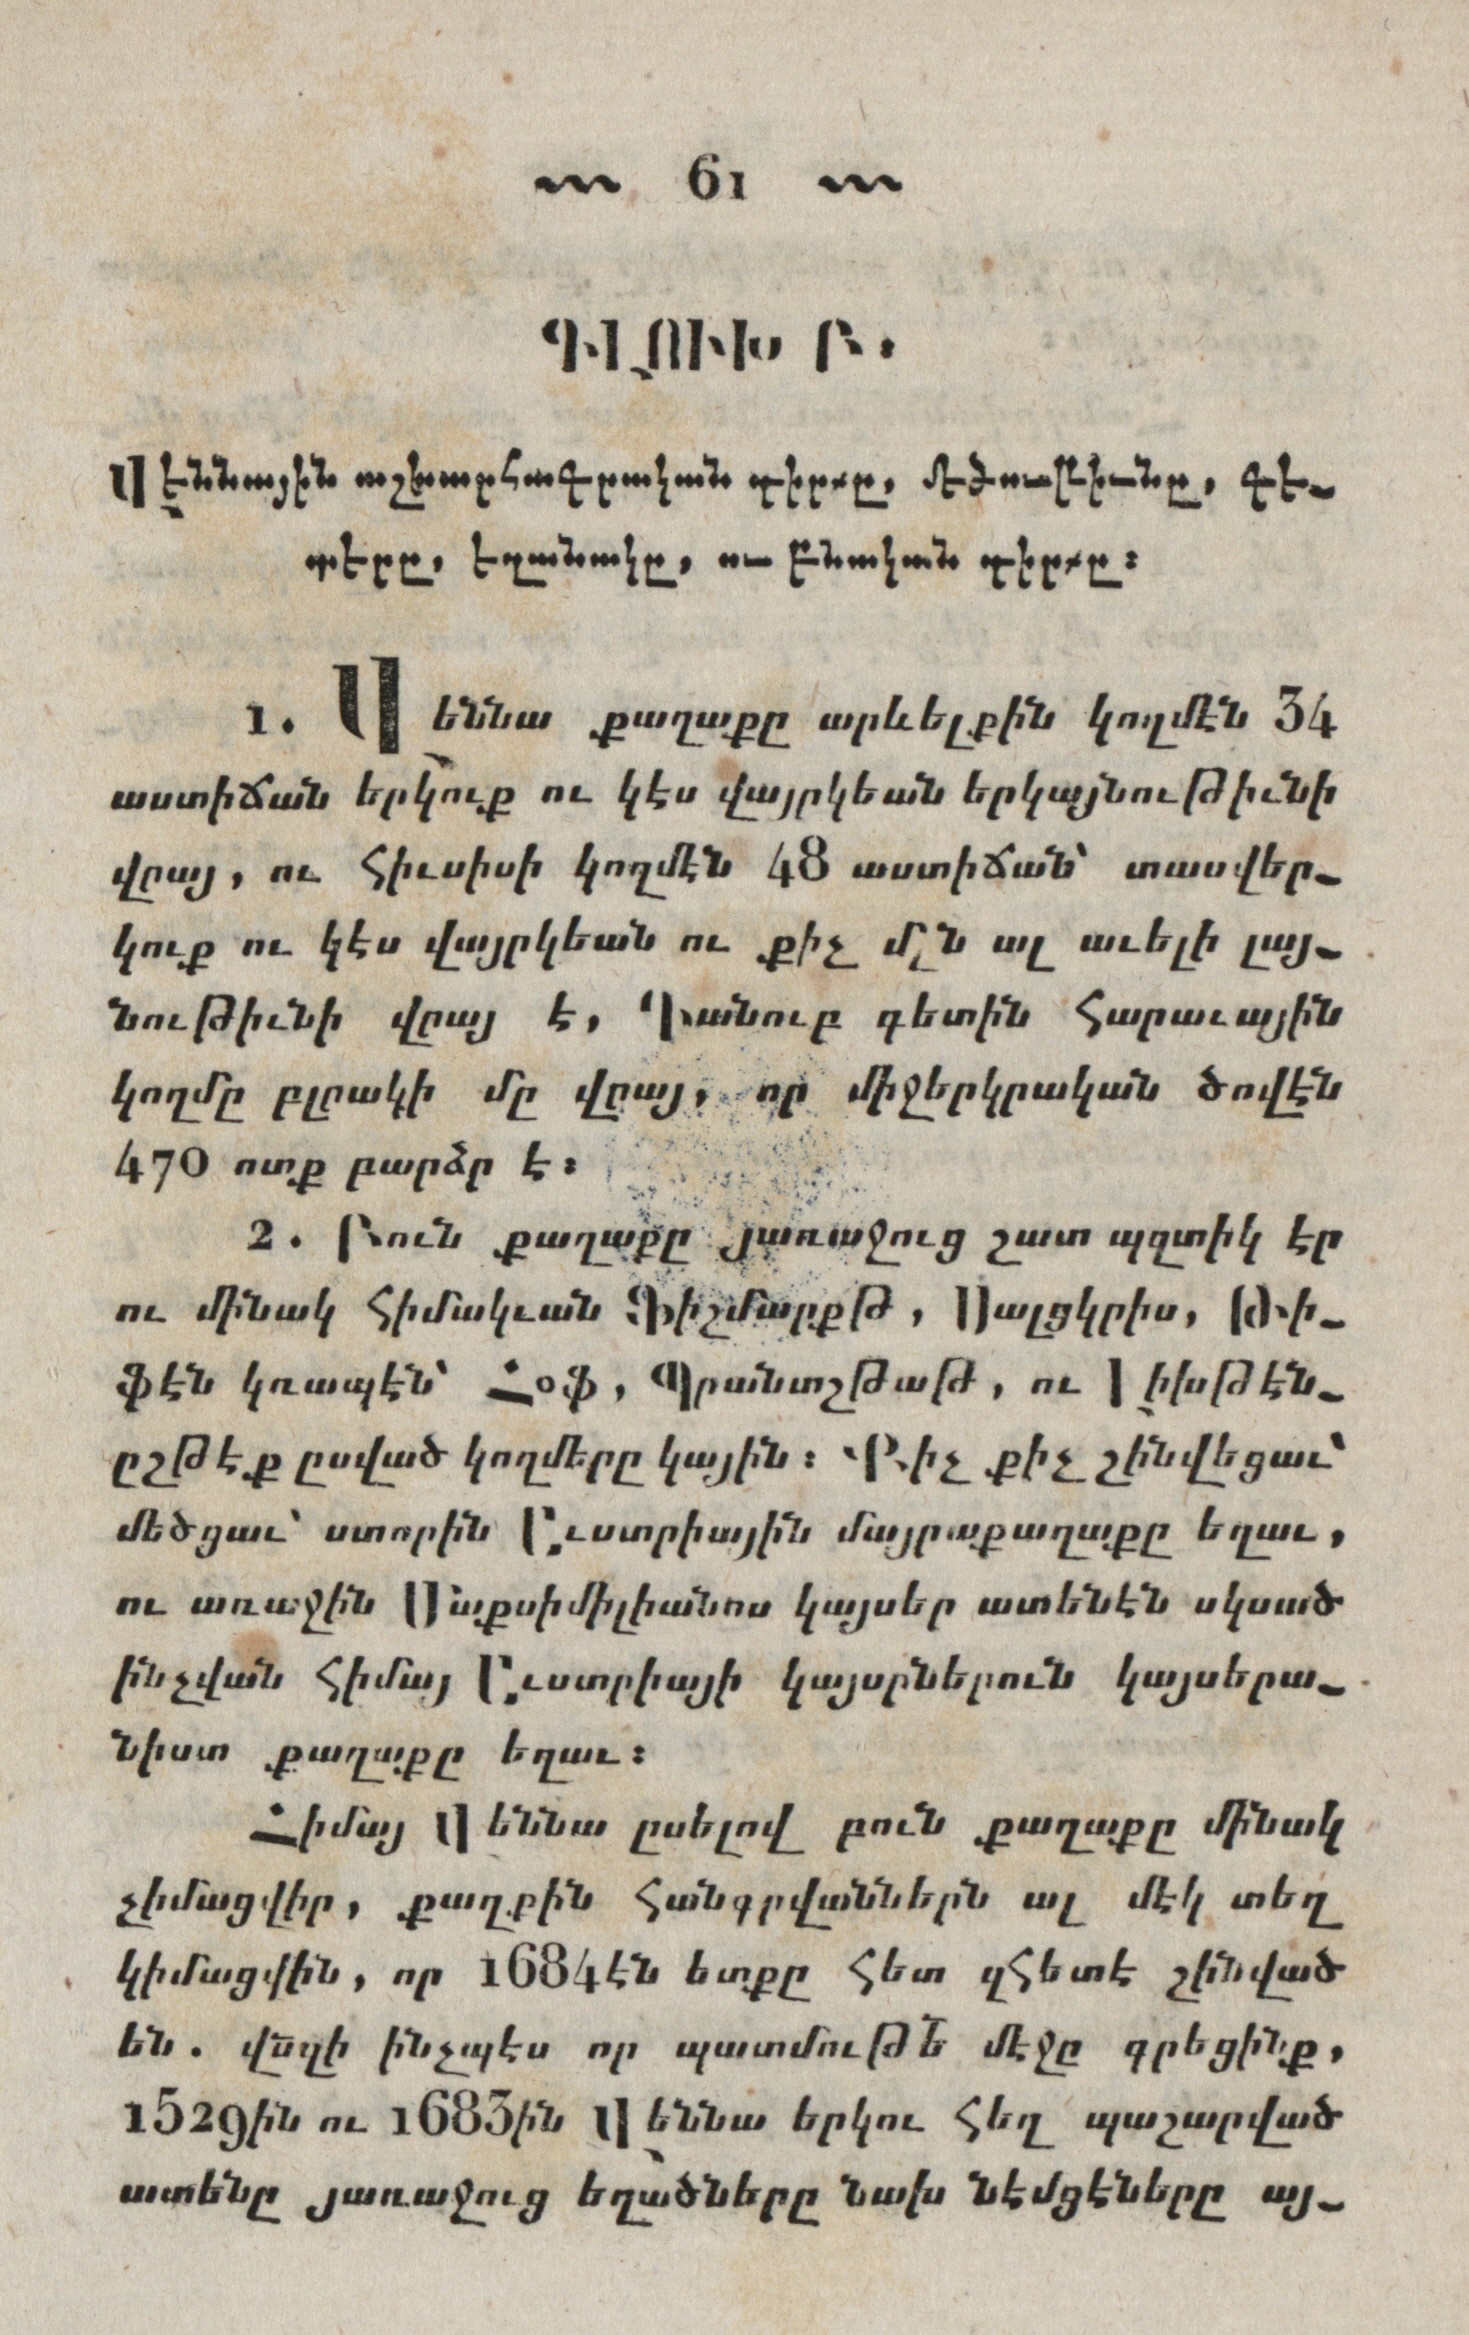 61
ԳԼՈՒԽ Բ.
Վէննային աշխարհագրական դիրքը, մէծութիւնը, գե֊
տերը, եղանակը, ու բնական դիրքը։
1. Վեննա քաղաքը արևելքին կողմէն 34
աստիճան երկուք ու կէս վայրկեան երկայնութիւնի
վրայ, ու հիւսիսի կողմէն 48 աստիճան՝ տասվեր֊
կուք ու կէս վայրկեան ու քիչ մըն ալ աւելի լայ֊
նութիւնի վրայ է, Դանուբ գետին հարաւային
կողմը բլրակի մը վրայ, որ միջերկրական ծովէն
470 ոտք բարձր է։
2. Բուն քաղաքը յառաջուց շատ պզտիկ էր
ու մինակ հիմակւան Ֆիշմարքթ, Սալցկրիս, Թի֊
ֆէն կռապէն՝ Հօֆ, Պրանտշթաթ, ու Լիխթէն֊
ըշթէք ըսված կողմերը կային։ Քիչ քիչ շինվեցաւ՝
մեծցաւ՝ ստորին Աւստրիային մայրաքաղաքը եղաւ,
ու առաջին Մաքսիմիլիանոս կայսեր ատենէն սկսած
ինչվան հիմայ Աւստրիայի կայսրներուն կայսերա֊
նիստ քաղաքը եղաւ։
Հիմայ Վեննա ըսելով բուն քաղաքը մինակ
չիմացվիր, քաղքին հանգրվաններն ալ մէկ տեղ
կիմացվին, որ 1684էն ետքը հետ զհետէ շինված
են. վսզի ինչպէս որ պատմութե մէջը գրեցինք,
1529ին ու 1683ին Վեննա երկու հեղ պաշարված
ատենը յառաջուց եղածները նախ նէմցէները այ֊